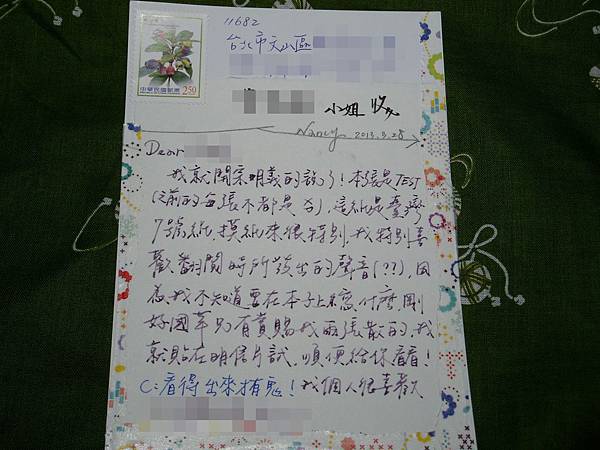 11682
台北市文山區
中華民國郵票 250
小姐 收
Nancy 2013.3.28
Dear
我就開宗明義的說了!本張是TEST
(之前的每張不都是ㄎ),這紙是臺灣
7號紙,摸紙來很特別,我特別喜
歡翻閱時所發出的聲音(??),因
為我不知道要在本子上寫什麼,剛
好國華ㄉ有賞賜我兩張散的,我
就貼在明信片試,順便給你看看!
C:看得出來才有鬼!我個人很喜歡